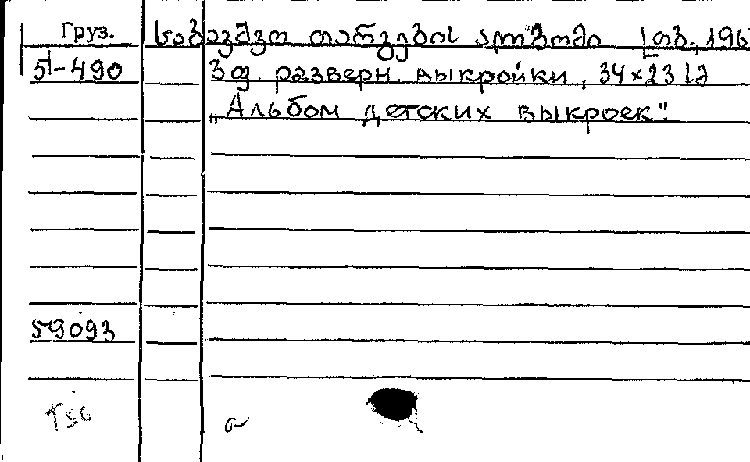 Груз. საბავშვო თარგების ალბომი [თბ., 196
51-490 3 ფ. разверн. выкройки, 34×23
„Альбом детских выкроек".
59093